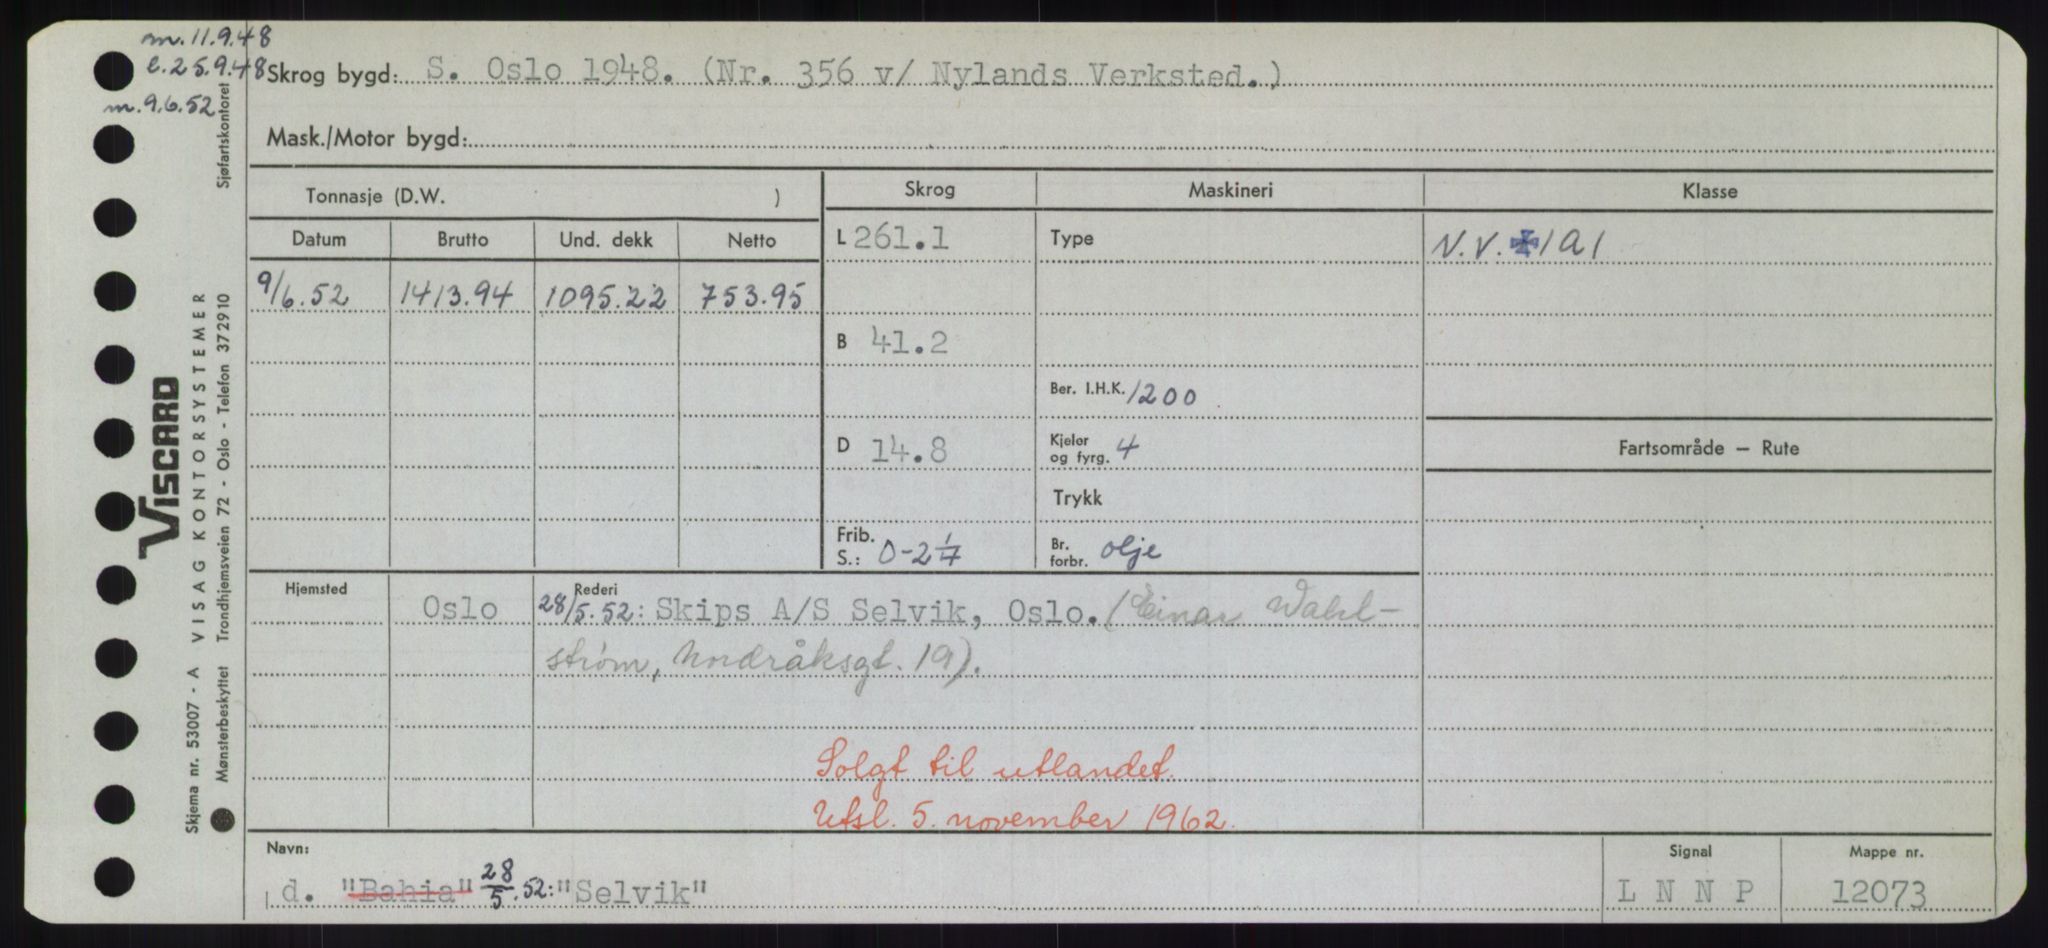 m. 11.9.48
e. 25.9.48
m. 9.6.52
Skrog bygd: S. Oslo 1948. (Nr. 356 v/ Nylands Verksted.)
Mask./Motor bygd:
Tonnasje (D.W. )
Skrog
Maskineri
Klasse
Datum Brutto Und. dekk Netto
L 261.1
Type
N.V. ✠ 1A1
9/6.52 1413.94 1095.22 753.95
B 41.2
Ber. I.H.K. 1200
D 14.8
Kjeler og fyrg. 4
Fartsområde — Rute
Trykk
Frib. S.: 0-2 1/7
Br. forbr. olje
Hjemsted
Rederi
Oslo 28/5.52: Skips A/S Selvik, Oslo. (Einar Wahl-
strøm, Nordråksgt. 19).
Solgt til utlandet.
Utsl. 5. november 1962.
Navn:
Signal
Mappe nr.
d. "Bahia" 28/5.52: "Selvik"
L N N P
12073
VISCARD
Skjema nr. 53007 - A VISAG KONTORSYSTEMER Sjøfartskontoret
Mønsterbeskyttet Trondhjemsveien 72 - Oslo - Telefon 372910